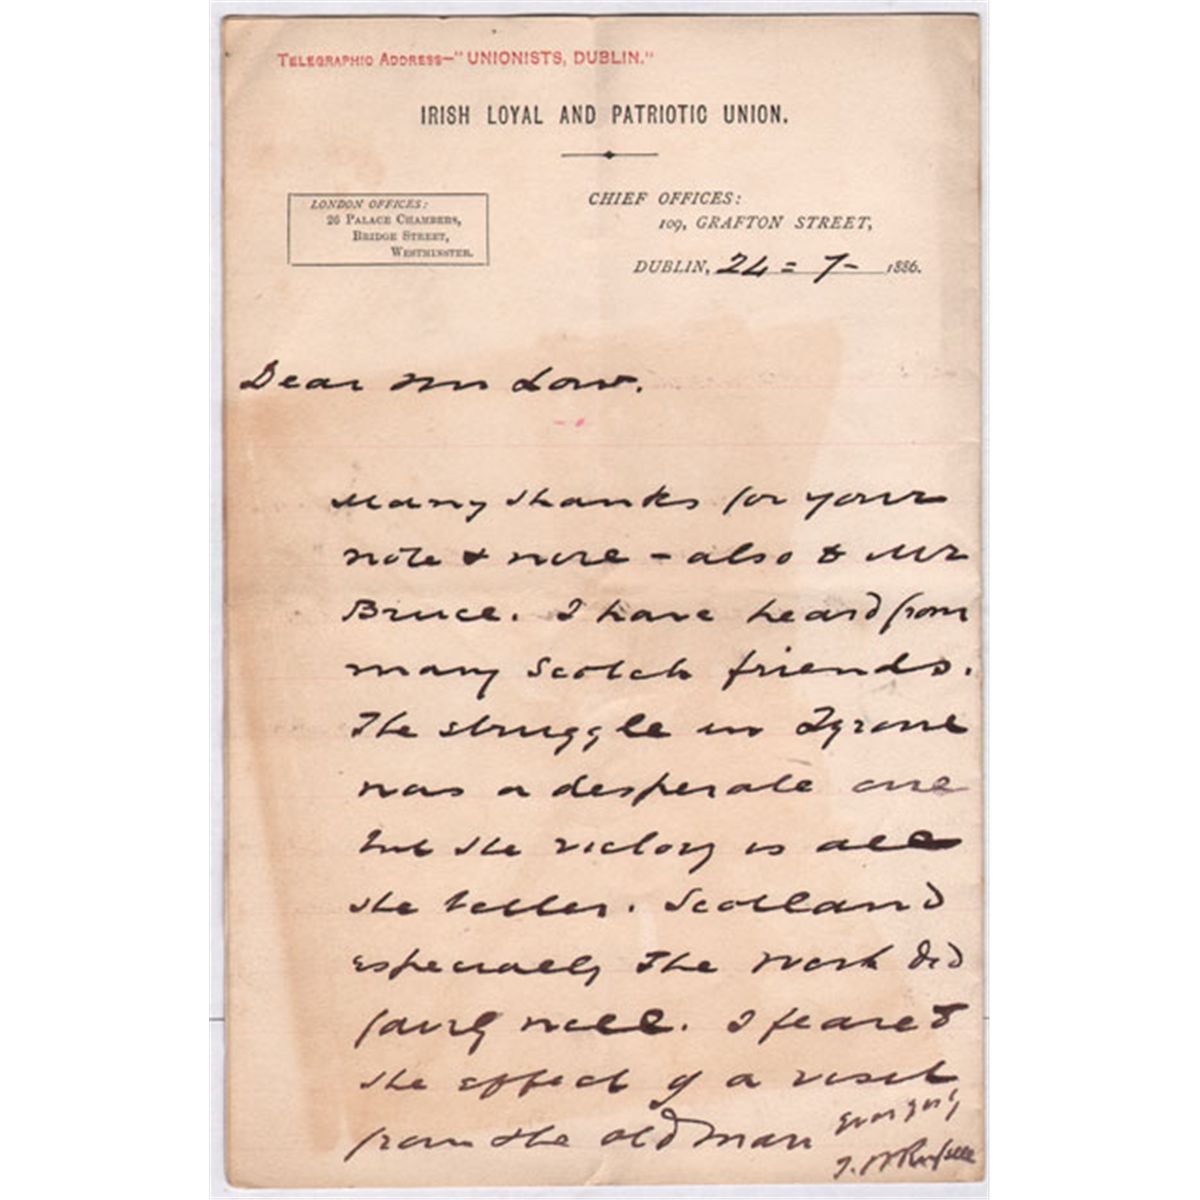 TELEGRAPHIC ADDRESS—"UNIONISTS, DUBLIN."
IRISH LOYAL AND PATRIOTIC UNION.
LONDON OFFICES:
26 PALACE CHAMBERS,
BRIDGE STREET,
WESTMINSTER.
CHIEF OFFICES:
109, GRAFTON STREET,
DUBLIN, 24 = 7 - 1886.
Dear Mr Low.
Many thanks for your
note & wire - also to Mr
Bruce. I have heard from
many Scotch friends.
The struggle in Tyrone
was a desperate one
but the victory is all
the better. Scotland
especially the work did
fairly well. I feared
the effect of a visit
from the old man
T. W Russell